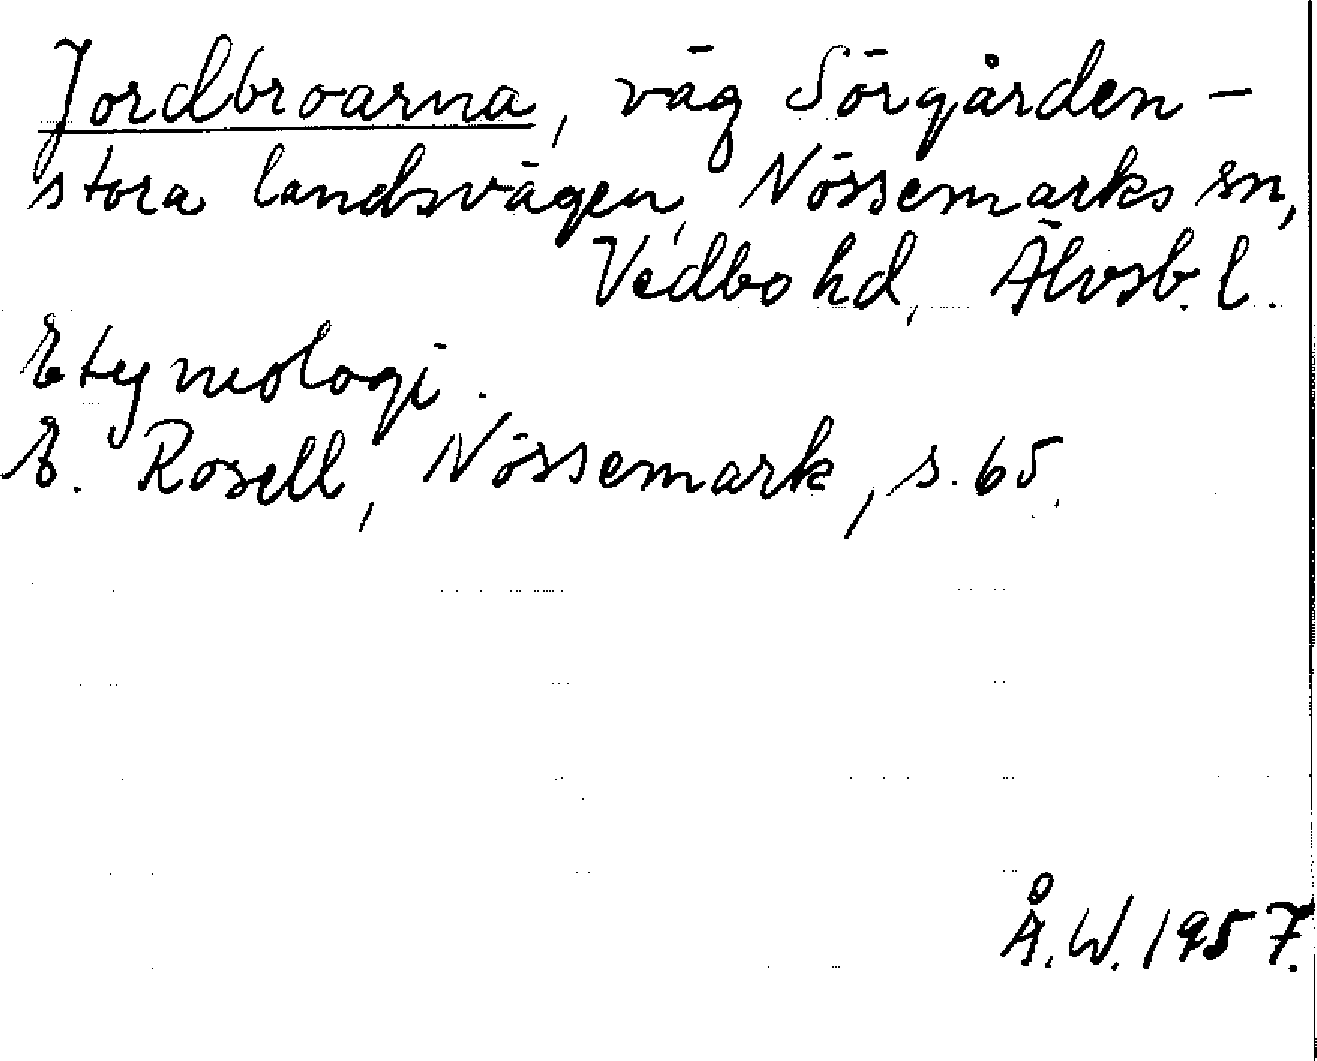 Jordbroarna, väg Sörgården –
stora landsvägen, Nössemarks sn,
Vedbo hd, Älvsb. l.
Etymologi.
E. Rosell, Nössemark, s. 65.
Å. W. 1957.